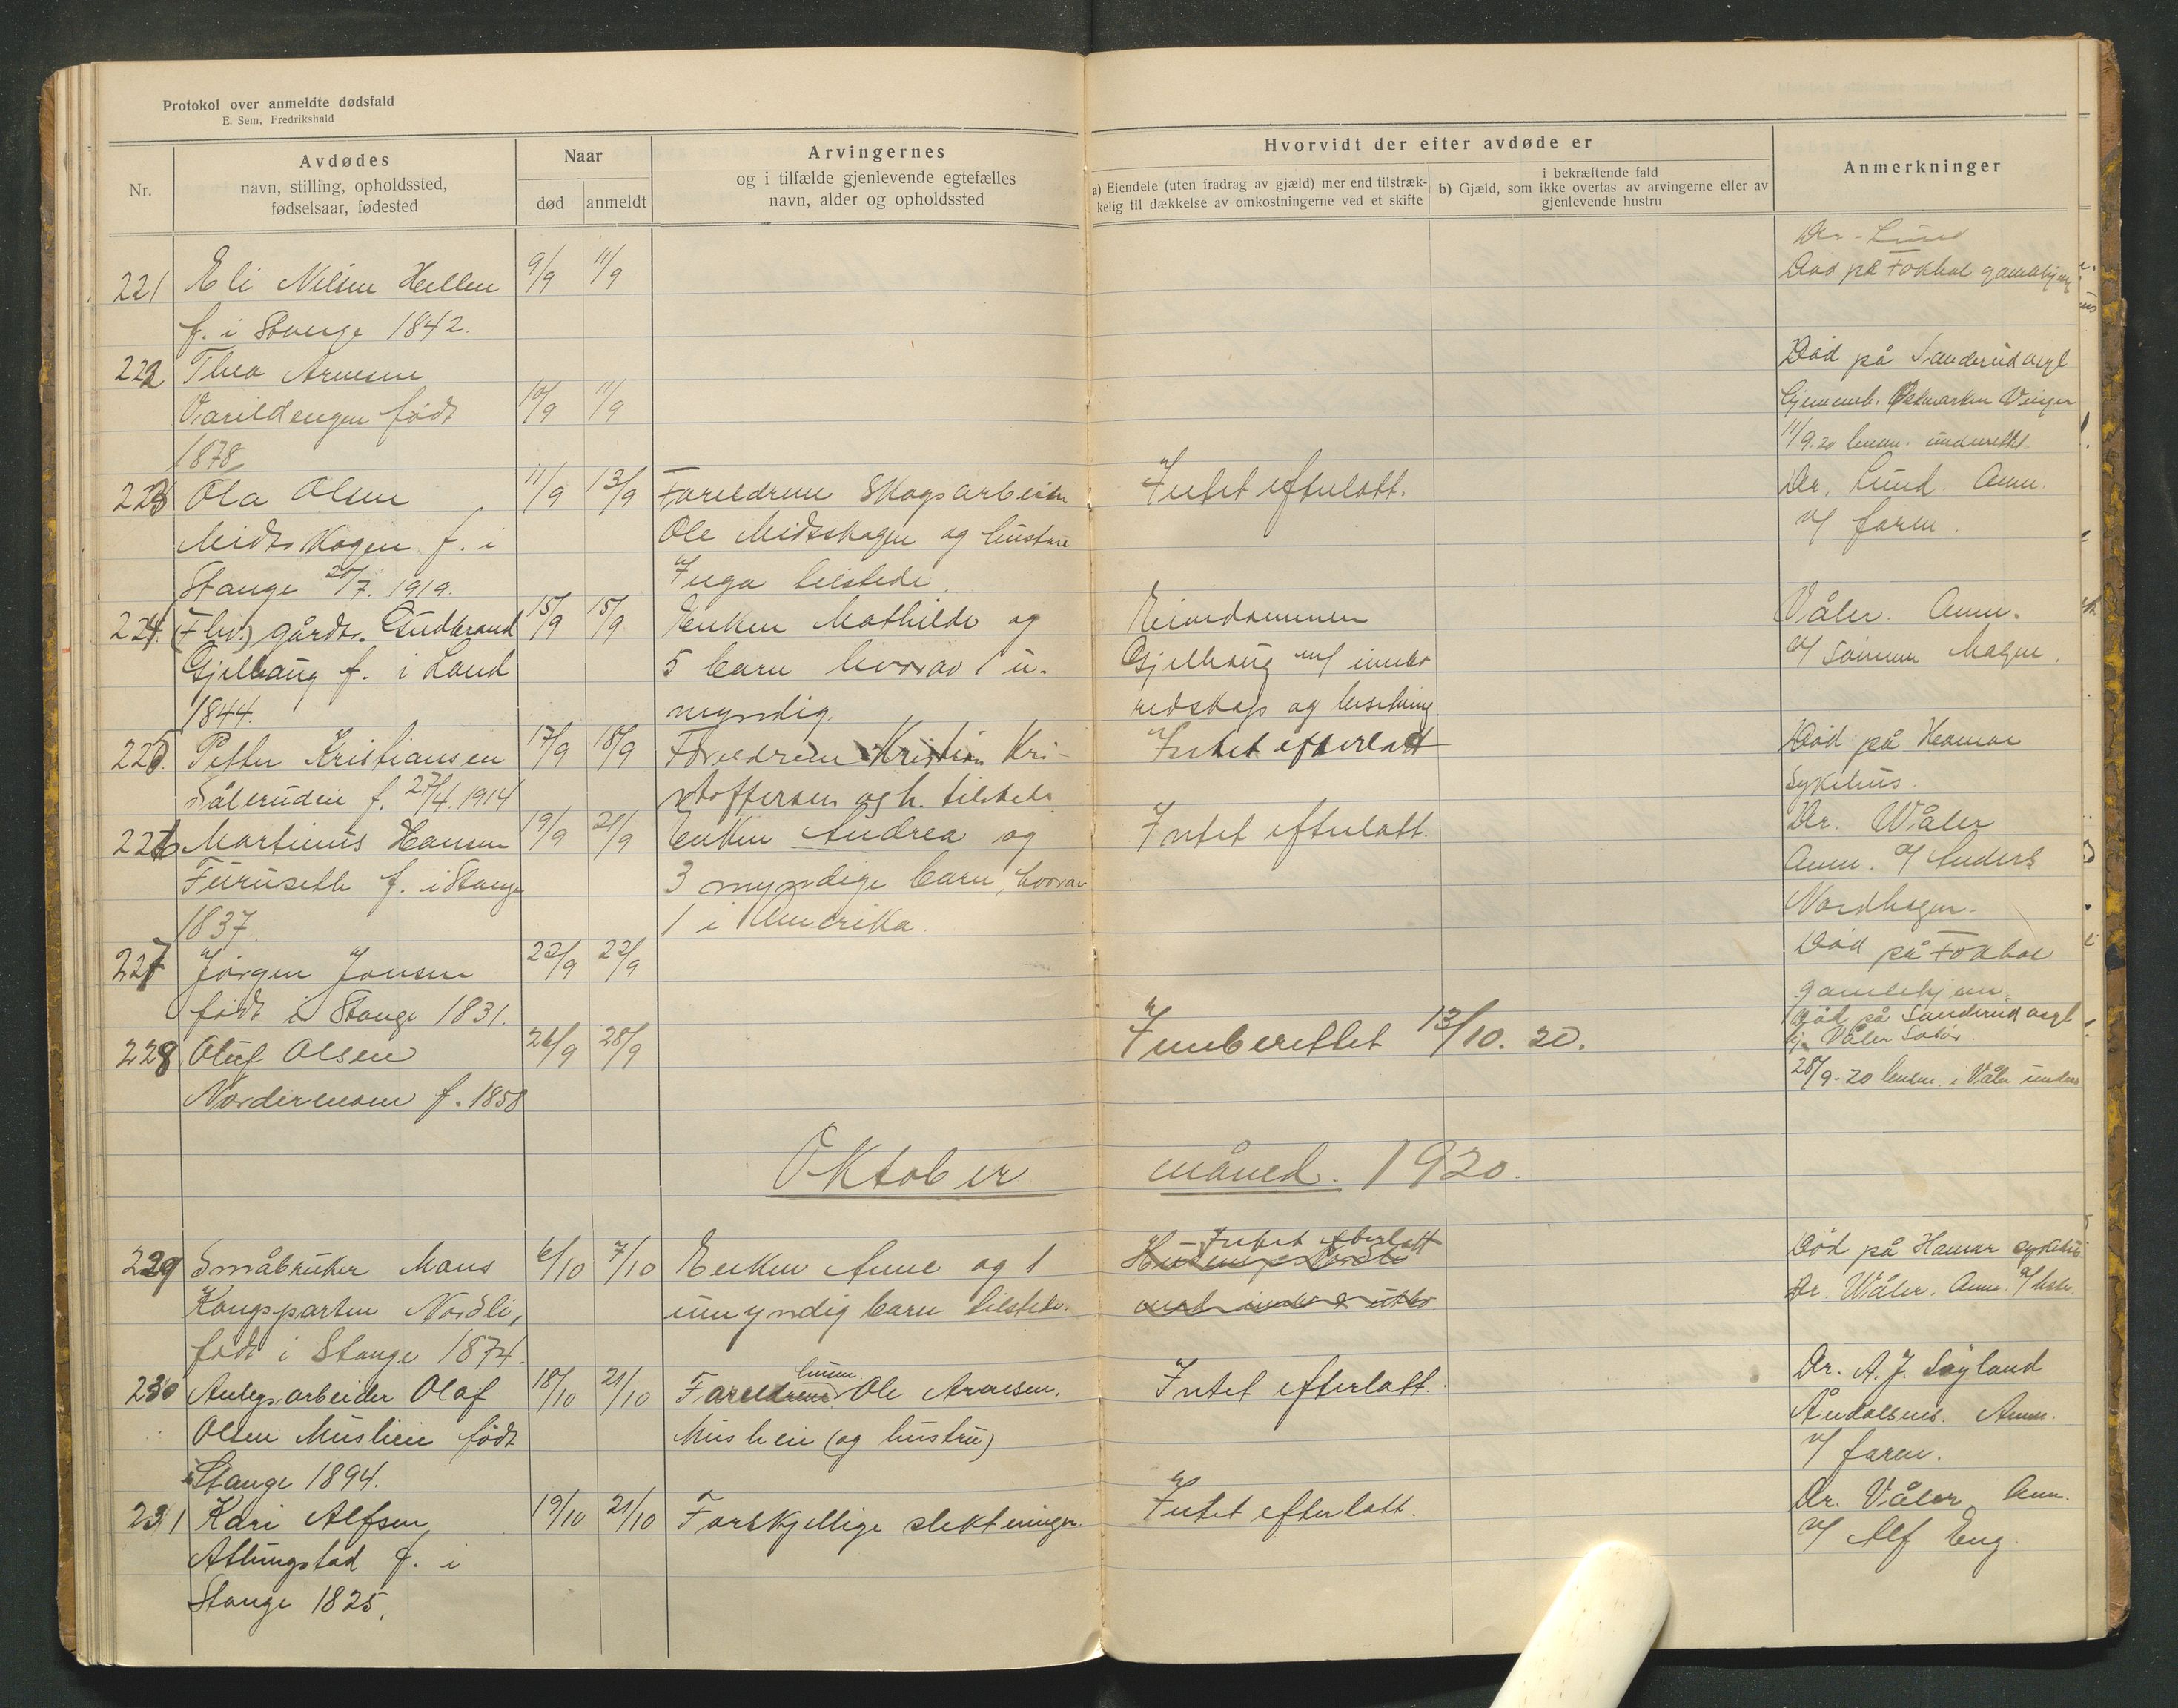 Protokol over anmeldte dødsfald
E. Sem, Fredrikshald
Nr.
Avdødes
navn, stilling, opholdssted,
fødselsaar, fødested
Naar
død
anmeldt
Arvingernes
og i tilfælde gjenlevende egtefælles
navn, alder og opholdssted
Hvorvidt der efter avdøde er
a) Eiendele (uten fradrag av gjæld) mer end tilstræk-
kelig til dækkelse av omkostningerne ved et skifte
i bekræftende fald
b) Gjæld, som ikke overtas av arvingerne eller av
gjenlevende hustru
Anmerkninger
221 Eli Nilsen Hellen 9/9 11/9
f. i Stange 1842.
Dr. Lund
Død på Fokhol gamlehjem
222 Thea Arnesen
Varildengen født 10/9 11/9
1878
Død på Sanderud asyl
Hjemmeh. Østmarken Vinger
11/9.20 lensm. underrettet.
223 Ola Olsen 11/9 13/9 Foreldrene Skogsarbeider Intet efterlatt. Dr. Lund. Anm.
Midtskogen f. i Ole Midtskogen og hustru v/ faren.
Stange 20/7. 1919. Inga tilstede.
224. (Fhv.) gårdbr. Gudbrand 15/9 15/9 Enken Mathilde og Eiendommen Våler. Anm.
Gjelhaug f. i Land 5 barn hvorav 1 u- Gjelhaug m/ innbo v/ sønnen Magne.
1844. myndig. redskap og besetning
225. Petter Kristiansen 17/9 18/9 Foreldrene Kristian Kri- Intet efterlatt Død på Hamar
Såleruden f. 27/4. 1914 stoffersen og h. tilstede Sykehus.
226 Martinus Hansen 19/9 21/9 Enken Andrea og Intet efterlatt. Dr. Wåler
Furuseth f. i Stange 3 myndige barn, hvorav Anm. v/ Anders
1837. 1 i Amerika. Nordhagen.
227 Jørgen Jonsen 22/9 22/9 Død på Fokhol
født i Stange 1831. gamlehjem.
228 Oluf Olsen 26/9 28/9 Innberettet 13/10. 20. Død på Sanderud asyl
Norderenom f. 1858 hj. Våler Solør.
28/9-20 lensm. i Våler underr.
Oktober måned. 1920.
229 Småbruker Mons 6/10 7/10 Enken Anne og 1 Intet efterlatt Død på Hamar sykehus
Kongsparten Nordli, umyndig barn tilstede. Dr. Wåler. Anm.
født i Stange 1874.
230 Anlegsarbeider Olaf 18/10 21/10 Foreldrene Ole Arnesen, Intet efterlatt. Dr. A. J. Søyland
Olsen Muslien født Muslien (og hustru) Åndalsnes. Anm.
i Stange 1894. v/ faren.
231 Kari Alfsen 19/10 21/10 Forskjellige slektninger. Intet efterlatt. Dr. Våler, Anm.
Atlungstad f. i v/ Alf Eng.
Stange 1825.